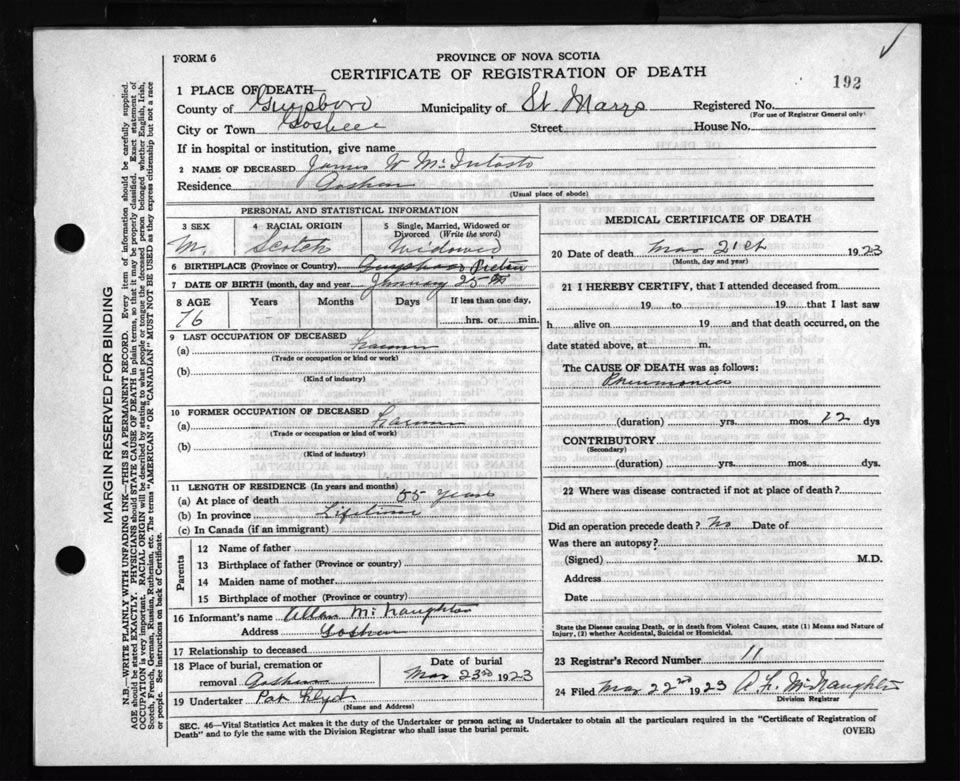 FORM 6
PROVINCE OF NOVA SCOTIA
CERTIFICATE OF REGISTRATION OF DEATH
192
1 PLACE OF DEATH—
County of Guysboro Municipality of St. Marys Registered No.
(For use of Registrar General only)
City or Town Goshen Street House No.
If in hospital or institution, give name
2 NAME OF DECEASED James W McIntosh
Residence Goshen
(Usual place of abode)
PERSONAL AND STATISTICAL INFORMATION
3 SEX
M.
4 RACIAL ORIGIN
Scotch
5 Single, Married, Widowed or Divorced (Write the word)
Widowed
6 BIRTHPLACE (Province or Country) Guysboro Pictou
7 DATE OF BIRTH (month, day and year) January 25th
8 AGE Years Months Days If less than one day,
76 hrs. or min.
9 LAST OCCUPATION OF DECEASED
(a) Farmer
(Trade or occupation or kind or work)
(b)
(Kind of industry)
10 FORMER OCCUPATION OF DECEASED
(a) Farmer
(Trade or occupation or kind of work)
(b)
(Kind of industry)
11 LENGTH OF RESIDENCE (In years and months)
(a) At place of death 55 years
(b) In province Lifetime
(c) In Canada (if an immigrant)
Parents
12 Name of father
13 Birthplace of father (Province or country)
14 Maiden name of mother
15 Birthplace of mother (Province or country)
16 Informant's name Allan McNaughton
Address Goshen
17 Relationship to deceased
18 Place of burial, cremation or removal Goshen
Date of burial
Mar 23rd 1923
19 Undertaker Pat
(Name and Address)
MEDICAL CERTIFICATE OF DEATH
20 Date of death Mar 21st 1923
(Month, day and year)
21 I HEREBY CERTIFY, that I attended deceased from
19 to 19 that I last saw
h alive on 19 and that death occurred, on the
date stated above, at m.
The CAUSE OF DEATH was as follows:
Pneumonia
(duration) yrs. mos. 12 dys
CONTRIBUTORY
(Secondary)
(duration) yrs. mos. dys.
22 Where was disease contracted if not at place of death?
Did an operation precede death? No Date of
Was there an autopsy?
(Signed) M.D.
Address
Date
State the Disease causing Death, or in death from Violent Causes, state (1) Means and Nature of
Injury, (2) whether Accidental, Suicidal or Homicidal.
23 Registrar's Record Number 11
24 Filed Mar 22nd 1923 A. F. McNaughton
Division Registrar
SEC. 46—Vital Statistics Act makes it the duty of the Undertaker or person acting as Undertaker to obtain all the particulars required in the "Certificate of Registration of
Death" and to fyle the same with the Division Registrar who shall issue the burial permit.
(OVER)
MARGIN RESERVED FOR BINDING
N.B.—WRITE PLAINLY WITH UNFADING INK—THIS IS A PERMANENT RECORD. Every item of information should be carefully supplied.
AGE should be stated EXACTLY. PHYSICIANS should STATE CAUSE OF DEATH in plain terms, so that it may be properly classified. Exact statement of
OCCUPATION is very important. RACIAL ORIGIN will be described by stating to what people or tongue the deceased person belonged whether English, Irish,
Scotch, French, German, Russian, Ruthenian, etc. The terms "AMERICAN" OR "CANADIAN" MUST NOT BE USED as they express citizenship but not a race
or people. See instructions on back of Certificate.